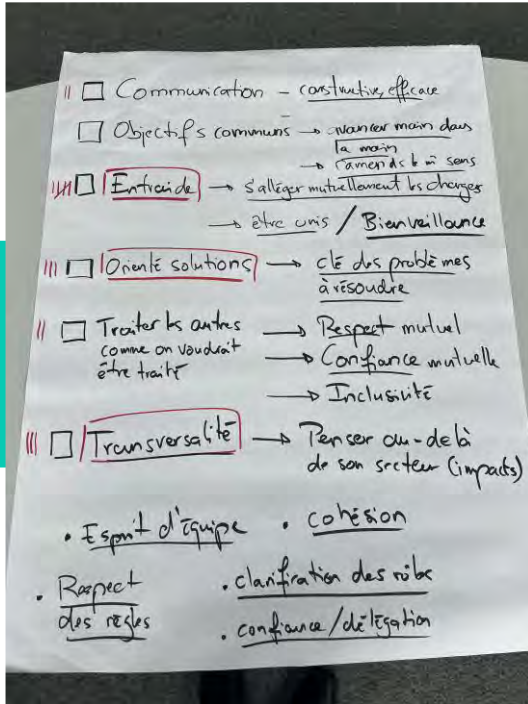 Communication - constructive, efficace
Objectifs communs → avancer main dans
la main
→ ds le m̂ sens
Entraide → s'alléger mutuellement les charges
→ être unis / Bienveillance
Orienté solutions → clé des problèmes
à résoudre
Traiter les autres → Respect mutuel
comme on voudrait → Confiance mutuelle
être traité
→ Inclusivité
Transversalité → Penser au-delà
de son secteur (impacts)
• Esprit d'équipe • cohésion
• Respect • clarification des rôles
des règles • confiance/délégation